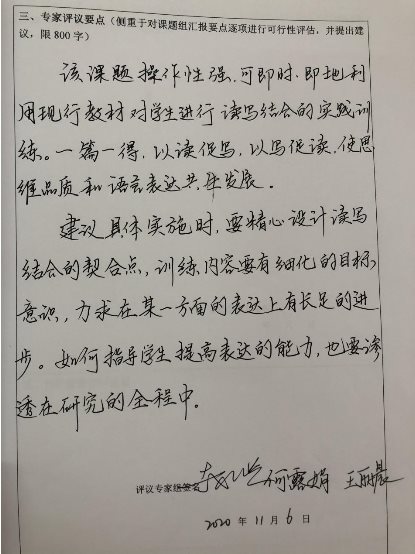 三、专家评议要点（侧重于对课题组汇报要点逐项进行可行性评估，并提出建
议，限 800 字）
该课题操作性强，可即时、即地利
用现行教材对学生进行读写结合的实践训
练。一篇一得，以读促写，以写促读，使思
维品质和语言表达共生发展。
建议具体实施时，要精心设计读写
结合的契合点，训练内容要有细化的目标
意识，力求在某一方面的表达上有长足的进
步。如何指导学生提高表达的能力，也要渗
透在研究的全程中。
评议专家组签名 何露娟 王丽晨
2020 年 11 月 6 日